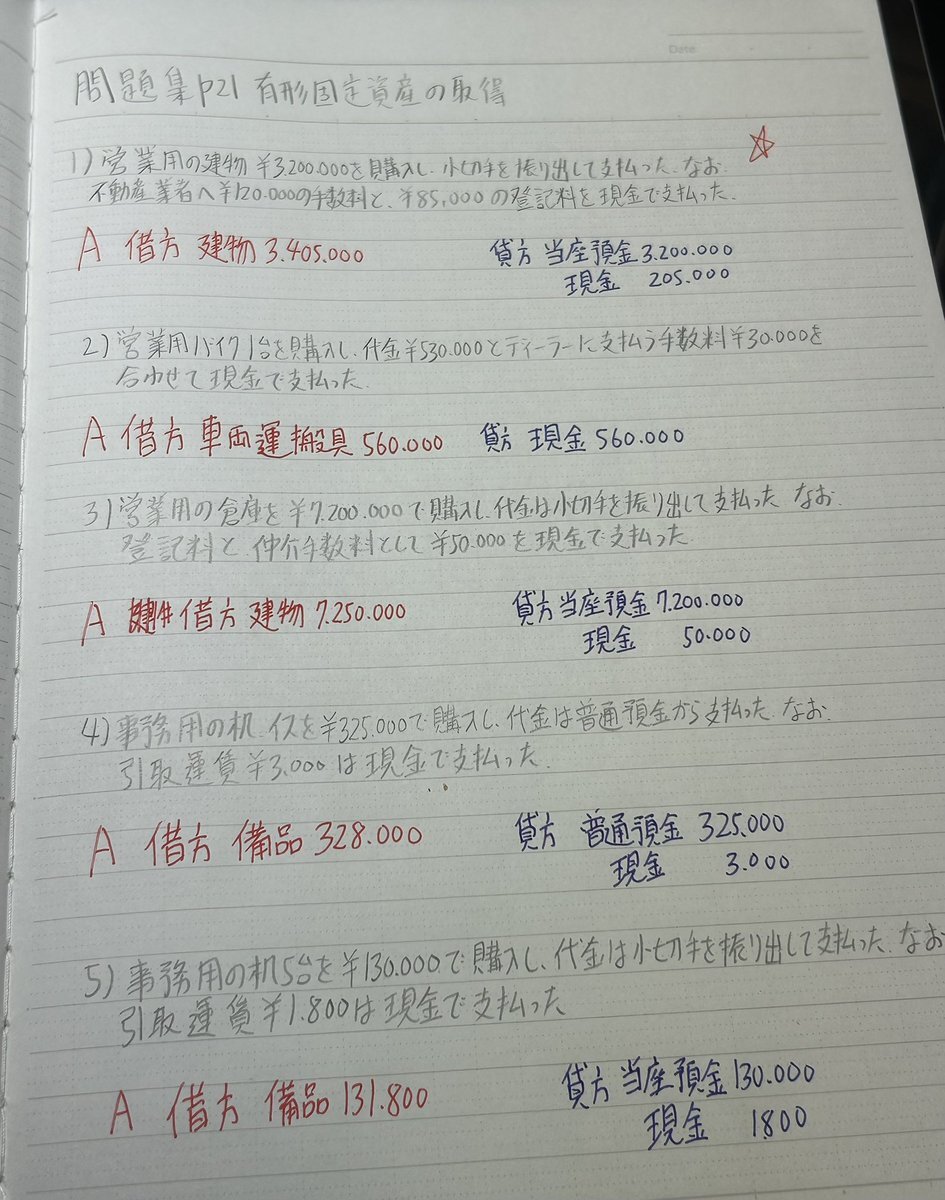 Date
問題集P21 有形固定資産の取得
1) 営業用の建物 ¥3.200.000を購入し、小切手を振り出して支払った。なお
不動産業者へ¥120.000の手数料と、¥85,000の登記料を現金で支払った。
A 借方 建物 3.405.000 貸方 当座預金 3.200.000
現金 205.000
2) 営業用バイク1台を購入し、代金¥530.000とディーラーに支払う手数料¥30.000を
合わせて現金で支払った。
A 借方 車両運搬具 560.000 貸方 現金 560.000
3) 営業用の倉庫を¥7.200.000で購入し、代金は小切手を振り出して支払った。なお
登記料と、仲介手数料として¥50.000を現金で支払った。
A 借方 建物 7.250.000 貸方 当座預金 7.200.000
現金 50.000
4) 事務用の机 イスを¥325.000で購入し、代金は普通預金から支払った。なお
引取運賃¥3.000は現金で支払った。
A 借方 備品 328.000 貸方 普通預金 325.000
現金 3.000
5) 事務用の机5台を¥130.000で購入し、代金は小切手を振り出して支払った。なお
引取運賃¥1.800は現金で支払った
A 借方 備品 131.800 貸方 当座預金 130.000
現金 1800